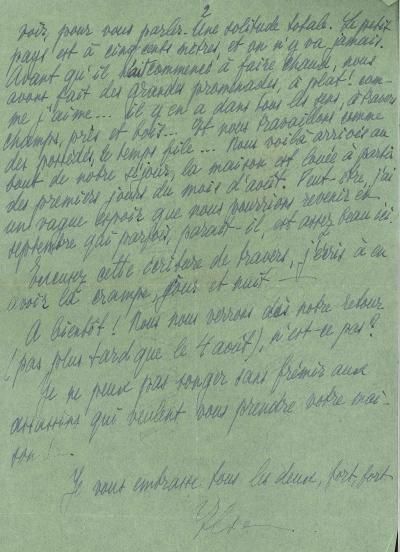 2
voir, pour vous parler. Une solitude totale. Le petit
pays est à cinq cents mètres, et on n'y va jamais.
Avant qu'il ait commencé à faire chaud, nous
avons fait des grandes promenades, à plat! com-
me j'aime... il y en a dans tous les sens, à travers
champs, près et bois... Et nous travaillons comme
des possédés, le temps file... Nous voilà arrivés au
bout de notre séjour, la maison est louée à partir
des premiers jours du mois d'août. Peut-être, j'ai
un vague espoir que nous pourrions revenir en
septembre qui parfois, paraît-il, est assez beau ici.
Excusez cette écriture de travers, j'écris à en
avoir la crampe, jour et nuit —
A bientôt! Nous nous verrons dès notre retour
(pas plus tard que le 4 août), n'est-ce pas?
Je ne peux pas songer sans frémir aux
assassins qui veulent vous prendre votre mai-
son!...
Je vous embrasse tous les deux, fort, fort